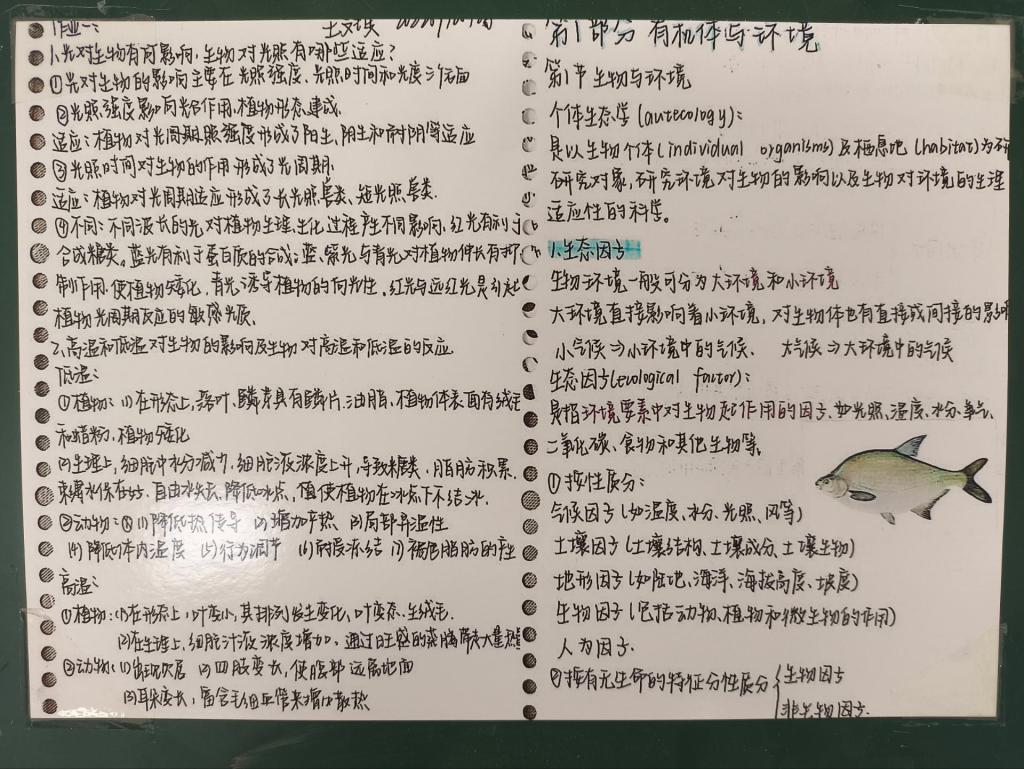 作业一：
1.光对生物有何影响，生物对光照有哪些适应？
①光对生物的影响主要在光照强度、光照时间和光质三个方面
②光照强度影响光合作用，植物形态建成。
适应：植物对光周期照强度形成了阳生，阴生和耐阴等适应
③光照时间对生物的作用形成了光周期。
适应：植物对光周期适应形成了长光照兽类、短光照兽类.
④不同：不同波长的光对植物生理、生化过程产生不同影响，红光有利于
合成糖类。蓝光有利于蛋白质的合成；蓝、紫光与青光对植物伸长有抑
制作用，使植物矮化，青光诱导植物的向光性，红光与远红光是引起
植物光周期反应的敏感光质、
2、高温和低温对生物的影响及生物对高温和低温的反应
低温：
①植物：(1)在形态上，芽叶、鳞芽具有鳞片，油脂、植物体表面有绒毛
和蜡粉，植物矮化
(2)生理上，细胞中水分减少，细胞液浓度上升，导致糖类，脂肪积累.
降低冰点，植使植物在冰点下不结冰.
②动物：(1)降低热传导 (2)增加产热 (3)局部异温性
(4)降低体内温度 (5)行为调节 (6)耐受冻结 (7)褐色脂肪的产
高温：
①植物：(1)在形态上，叶变小，其排列发生变化，叶变态、生绒毛.
(2)在生理上，细胞汁液浓度增加，通过旺盛的蒸腾降大量热
②动物：(1)昼伏夜居 (2)四肢变长，使腹部远离地面
(3)耳朵变长，富含毛细血管来增加散热
第1部分 有机体与环境
第1节 生物与环境
个体生态学(autecology)：
是以生物个体(individual organisms)及栖息地(habitat)为研
研究对象，研究环境对生物的影响以及生物对环境的生理
适应性的科学。
1.生态因子
生物环境一般可分为大环境和小环境
大环境直接影响着小环境，对生物体也有直接或间接的影响
小气候⇒小环境中的气候、 大气候⇒大环境中的气候
生态因子(ecological factor)：
是指环境要素中对生物起作用的因子，如光照、温度、水分、氧气、
二氧化碳、食物和其他生物等。
①按性质分：
气候因子(如温度、水分、光照、风等)
土壤因子(土壤结构、土壤成分、土壤生物)
地形因子(如陆地、海洋、海拔高度、坡度)
生物因子(包括动物、植物和微生物的作用)
人为因子.
②按有无生命的特征分性质分{生物因子
非生物因子.